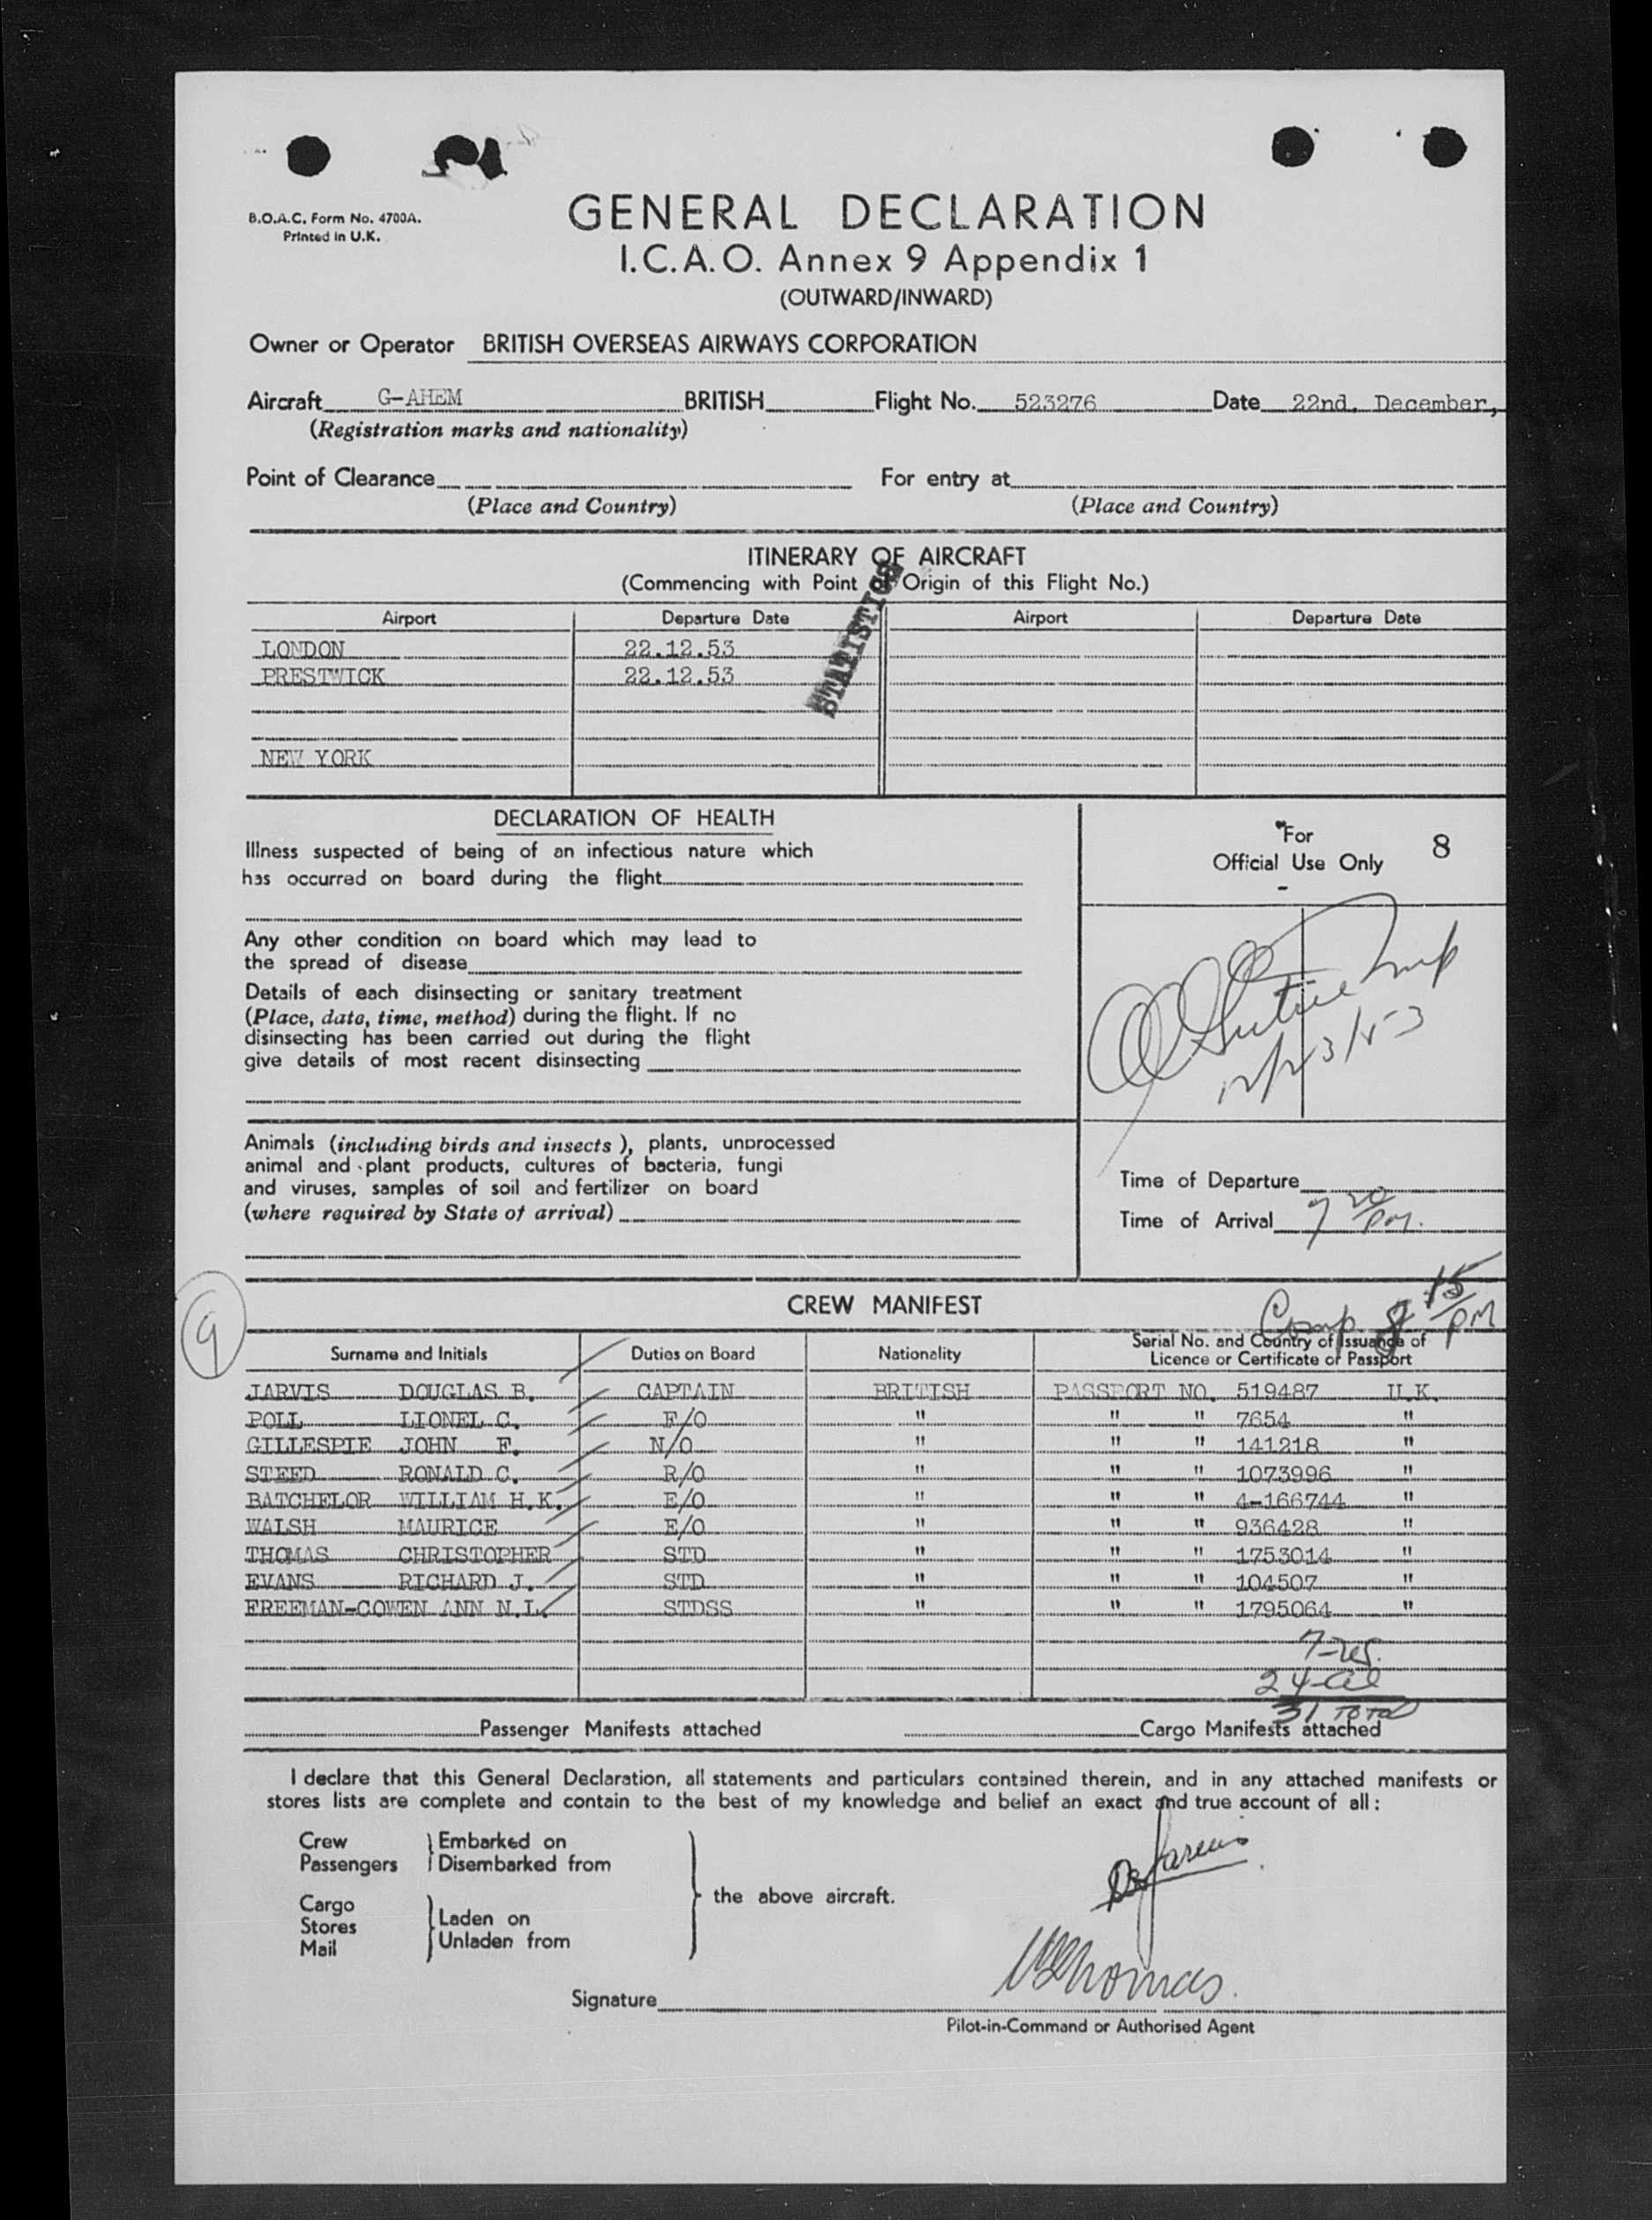 B.O.A.C. Form No. 4700A.
Printed in U.K.
GENERAL DECLARATION
I.C.A.O. Annex 9 Appendix 1
(OUTWARD/INWARD)
Owner or Operator BRITISH OVERSEAS AIRWAYS CORPORATION
Aircraft G-AHEM BRITISH Flight No. 523276 Date 22nd. December,
(Registration marks and nationality)
Point of Clearance For entry at
(Place and Country) (Place and Country)
ITINERARY OF AIRCRAFT
(Commencing with Point of Origin of this Flight No.)
STATISTICS
Airport Departure Date Airport Departure Date
LONDON 22.12.53
PRESTWICK 22.12.53
NEW YORK
DECLARATION OF HEALTH
Illness suspected of being of an infectious nature which
has occurred on board during the flight
Any other condition on board which may lead to
the spread of disease
Details of each disinsecting or sanitary treatment
(Place, date, time, method) during the flight. If no
disinsecting has been carried out during the flight
give details of most recent disinsecting
For
Official Use Only 8
12/23/53
Animals (including birds and insects), plants, unprocessed
animal and plant products, cultures of bacteria, fungi
and viruses, samples of soil and fertilizer on board
(where required by State of arrival)
Time of Departure
Time of Arrival 7 20 PM.
9
CREW MANIFEST
Comp 8 15 PM
Surname and Initials Duties on Board Nationality Serial No. and Country of Issuance of
Licence or Certificate or Passport
JARVIS DOUGLAS B. CAPTAIN BRITISH PASSPORT NO. 519487 U.K.
POLL LIONEL C. F/O " " " 7654 "
GILLESPIE JOHN F. N/O " " " 141218 "
STEED RONALD C. R/O " " " 1073996 "
BATCHELOR WILLIAM H.K. E/O " " " 4-166744 "
WALSH MAURICE E/O " " " 936428 "
THOMAS CHRISTOPHER STD " " " 1753014 "
EVANS RICHARD J. STD " " " 104507 "
FREEMAN-COWEN ANN N.I. STDSS " " " 1795064 "
24-
31 Total
Passenger Manifests attached Cargo Manifests attached
I declare that this General Declaration, all statements and particulars contained therein, and in any attached manifests or
stores lists are complete and contain to the best of my knowledge and belief an exact and true account of all :
Crew Embarked on
Passengers Disembarked from
the above aircraft.
Cargo
Stores Laden on
Mail Unladen from
Signature
Pilot-in-Command or Authorised Agent